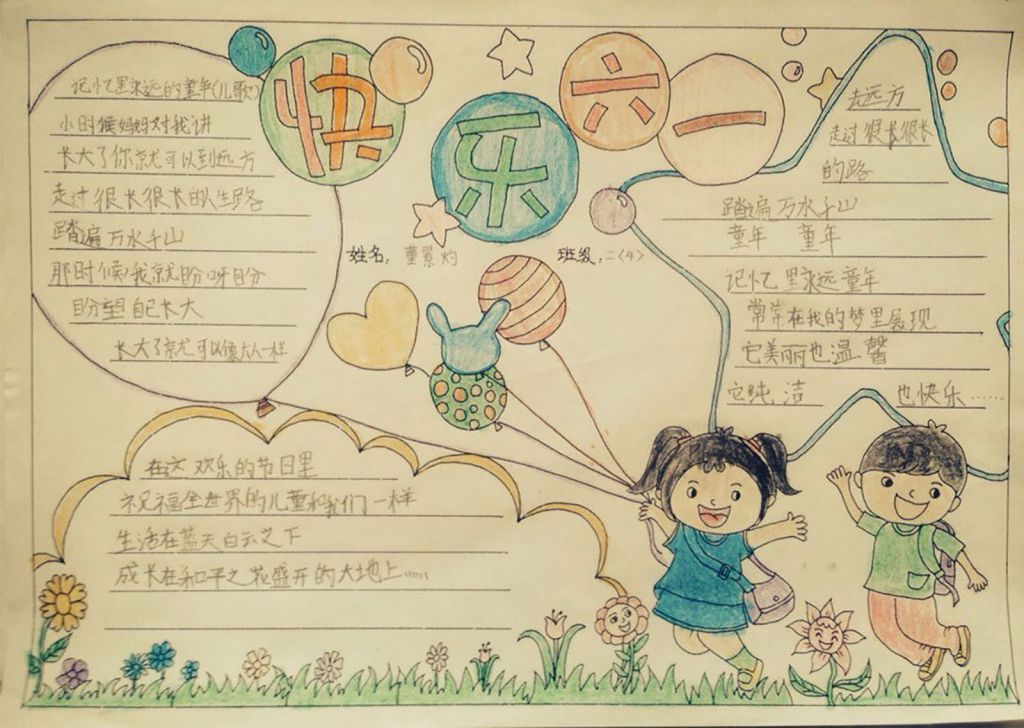 快乐六一
姓名：董累灼
班级：二〈4〉
记忆里永远的童年(儿歌)
小时候妈妈对我讲
长大了你就可以到远方
走过很长很长的人生路
踏遍万水千山
那时候我就盼呀盼
盼望自己长大
长大了就可以像大人一样
去远方
走过很长很长
的路
踏遍万水千山
童年 童年
记忆里永远童年
常常在我的梦里展现
它美丽也温馨
它纯洁 也快乐……
在这欢乐的节日里
祝福全世界的儿童和我们一样
生活在蓝天白云之下
成长在和平之花盛开的大地上……